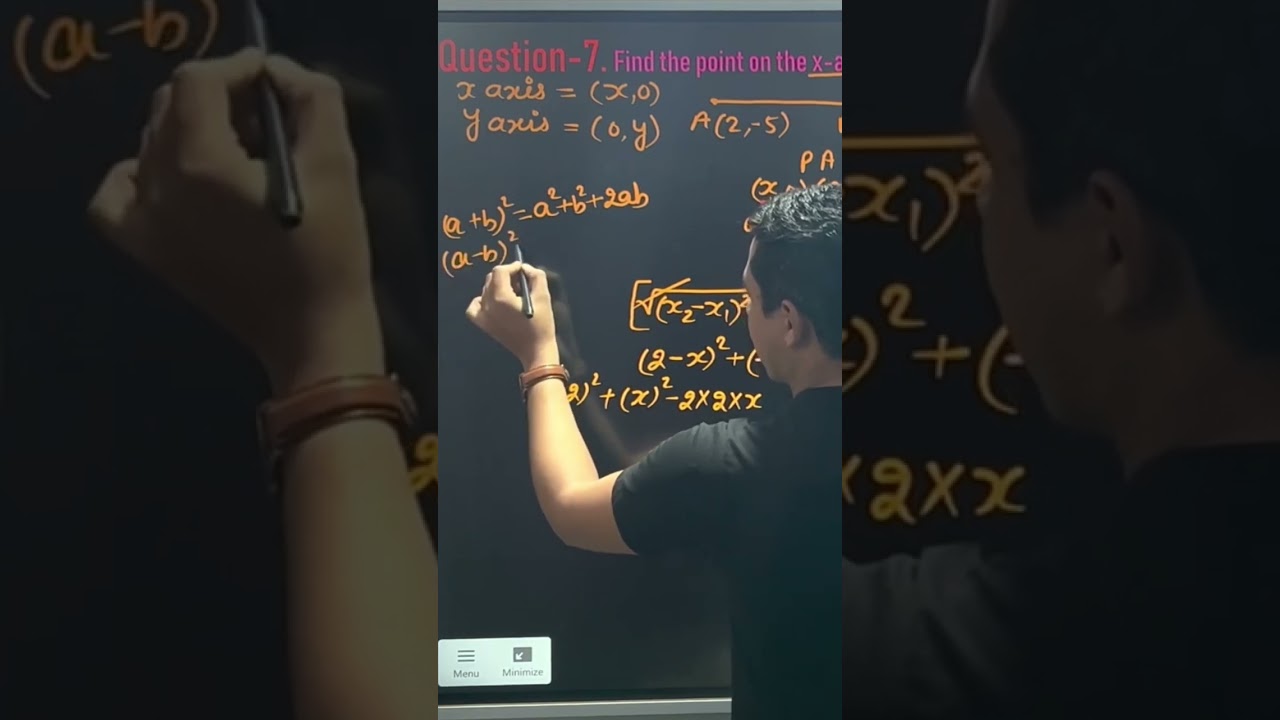 Question-7. Find the point on the x-a
x axis = (x,0)
y axis = (0,y)
A(2,-5)
P A
(a+b)² = a²+b²+2ab
(a-b)²
[√(x₂-x₁)²
(2-x)² + (-
2)² + (x)² - 2×2×x
Menu
Minimize
(a-b)
x₁)²
)² + (-
×2×x